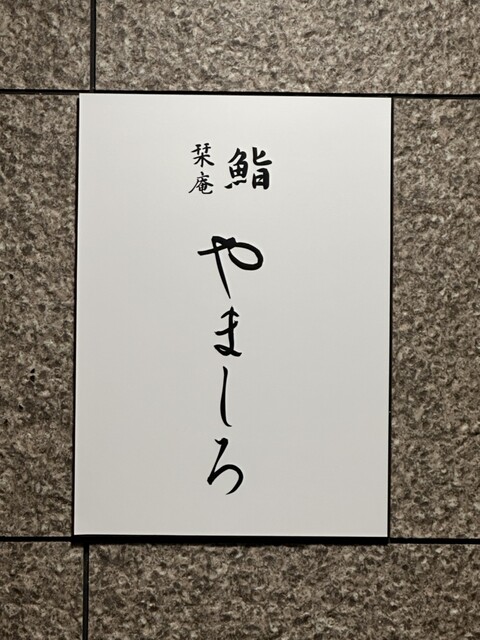 鮨
栞庵
やましろ